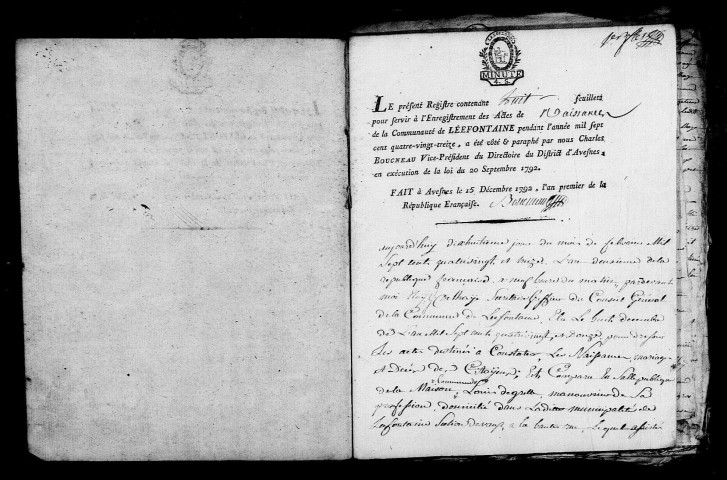 MINUTE
LE présent Registre contenant huit feuillets
pour servir à l'Enregistrement des Actes de Naissance
de la Communauté de LÉEFONTAINE pendant l'année mil sept
cent quatre-vingt-treize, a été côté & paraphé par nous Charles
BOUCNEAU Vice-Président du Directoire du District d'Avesnes,
en exécution de la loi du 20 Septembre 1792.
FAIT à Avesnes le 15 Décembre 1792, l'an premier de la
République Française.
aujourd'huy dixhuitieme jour du mois de Mil
Sept Cents quatrevingt et L'an deuxieme de la
republique francaise a neuf heures du matin, pardevant
moi Secretaire Greffier du Conseil Général
de la Commune de Leefontaine, Elu Le huit decembre
de L'an Mil Sept Cents quatrevingt et pour dresser
Les actes destinés a Constater Les Naissances, mariages
et Décés des Citoijens, Est Comparu En Salle publique
de la Maison Commune Louis manouvrier de Sa
profession, domicilié dans Laditte municipalité de
Leefontaine Section a la Lequel assisté